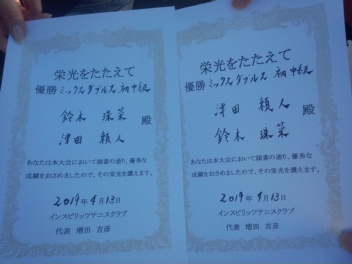 栄光をたたえて
優勝 ミックスダブルス 初中級
鈴木 珠菜
津田 頼人
殿
あなたは本大会において頭書の通り、優秀な
成績をおさめましたので、その栄光を讃えます。
2019年4月13日
インスピリッツテニスクラブ
代表 増田 吉彦
栄光をたたえて
優勝 ミックスダブルス 初中級
津田 頼人
鈴木 珠菜
殿
あなたは本大会において頭書の通り、優秀な
成績をおさめましたので、その栄光を讃えます。
2019年4月13日
インスピリッツテニスクラブ
代表 増田 吉彦